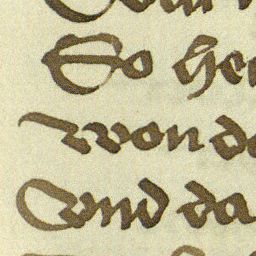 So he
von de
vnd da